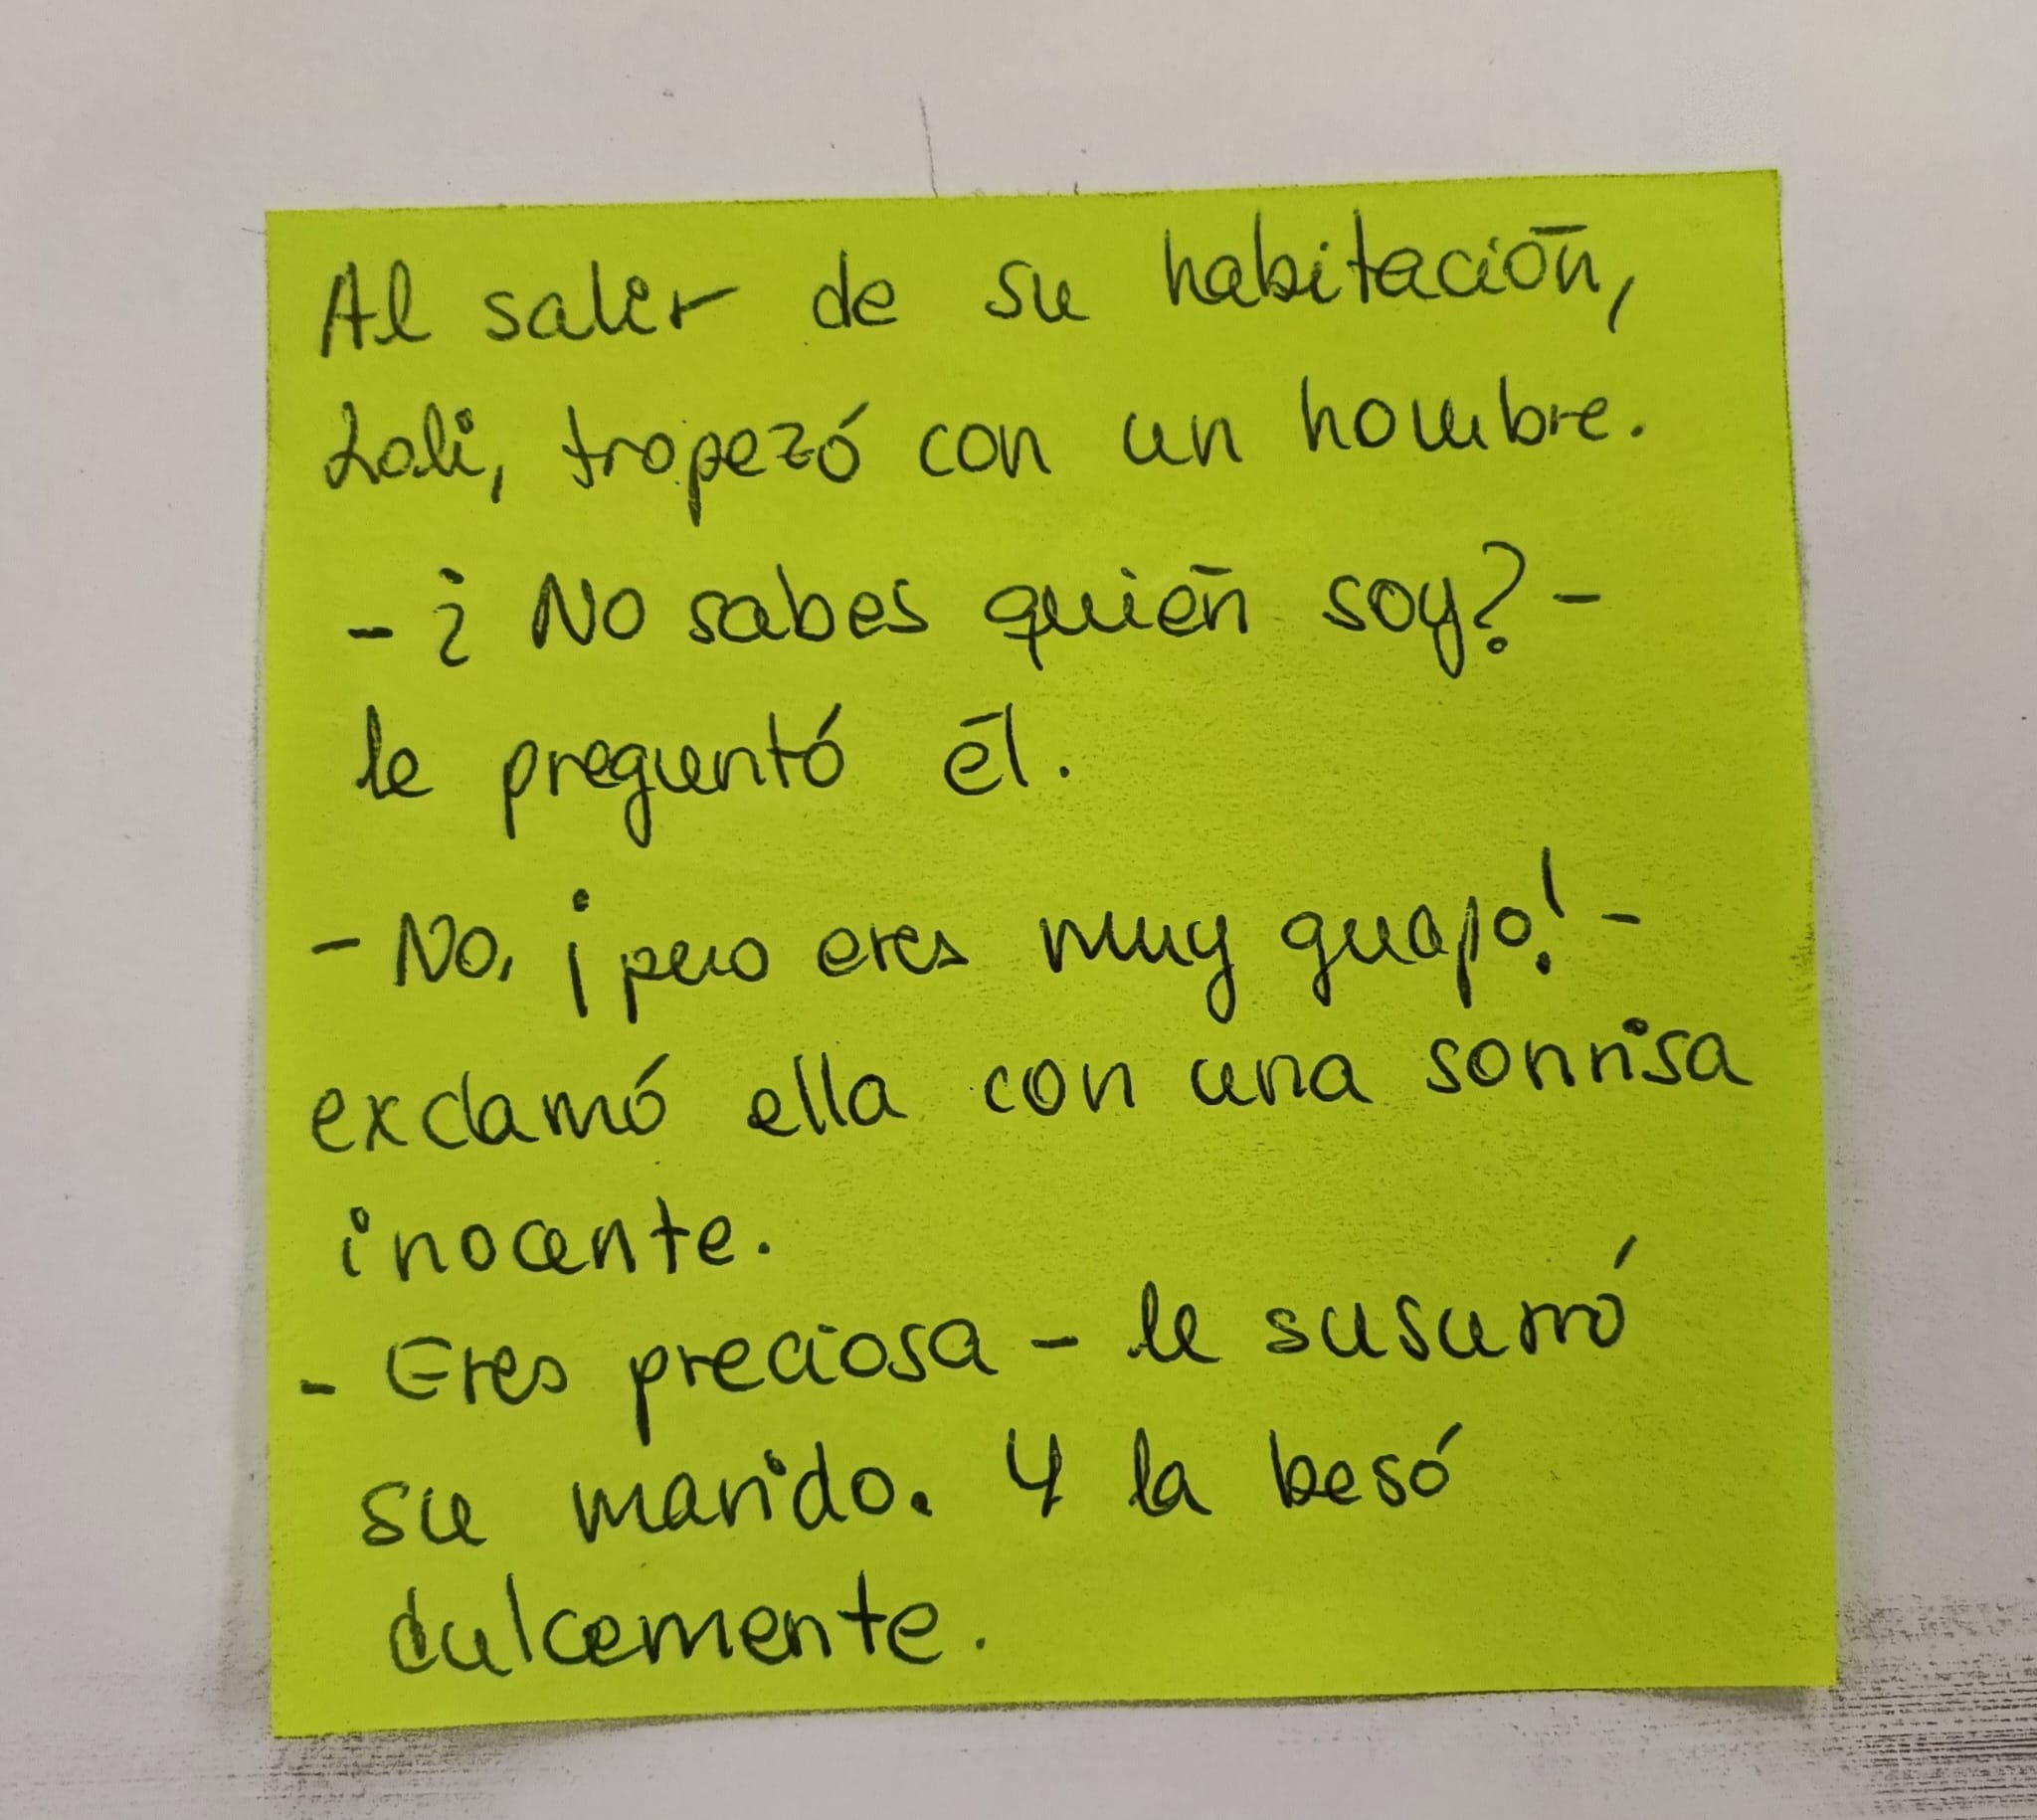 Al salir de su habitación,
Loli, tropezó con un hombre.
- ¿No sabes quién soy? -
le preguntó él.
- No, ¡pero eres muy guapo! -
exclamó ella con una sonrisa
inocente.
- Eres preciosa - le susurró
su marido. Y la besó
dulcemente.